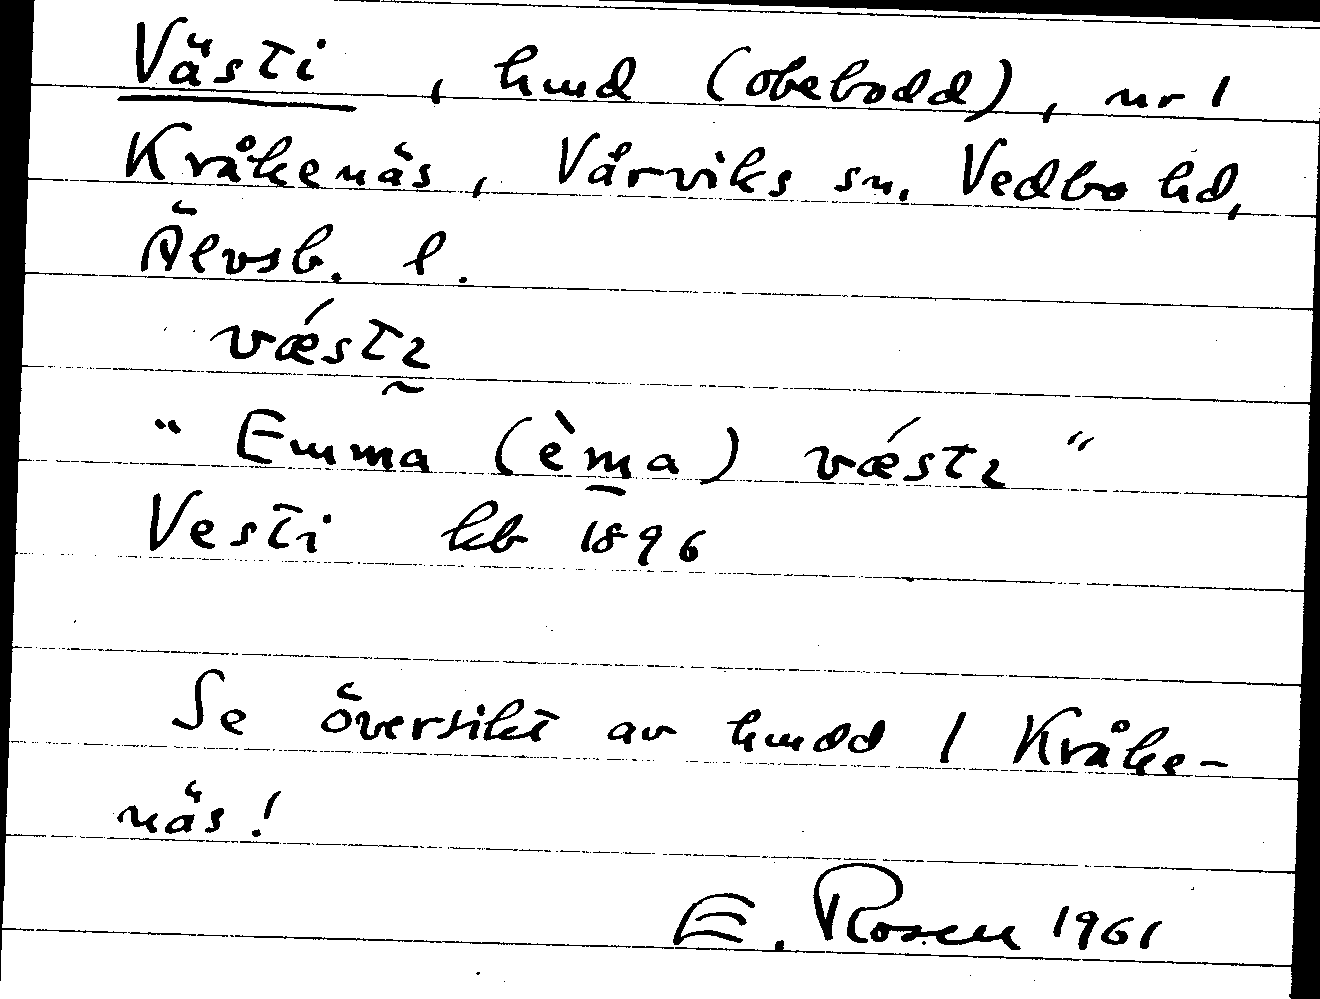 Västi, hmd (obebodd), nr 1
Kråkenäs, Vårviks sn. Vedbo hd,
Älvsb. l.
vǽstɩ
“ Emma (èm̲a) vǽstɩ “
Vesti kb 1896
Se översikt av hmdd 1 Kråke-
näs!
E. Rosen 1961